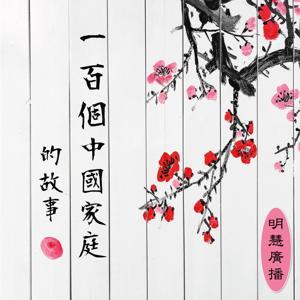 一百個中國家庭
的故事
明慧廣播